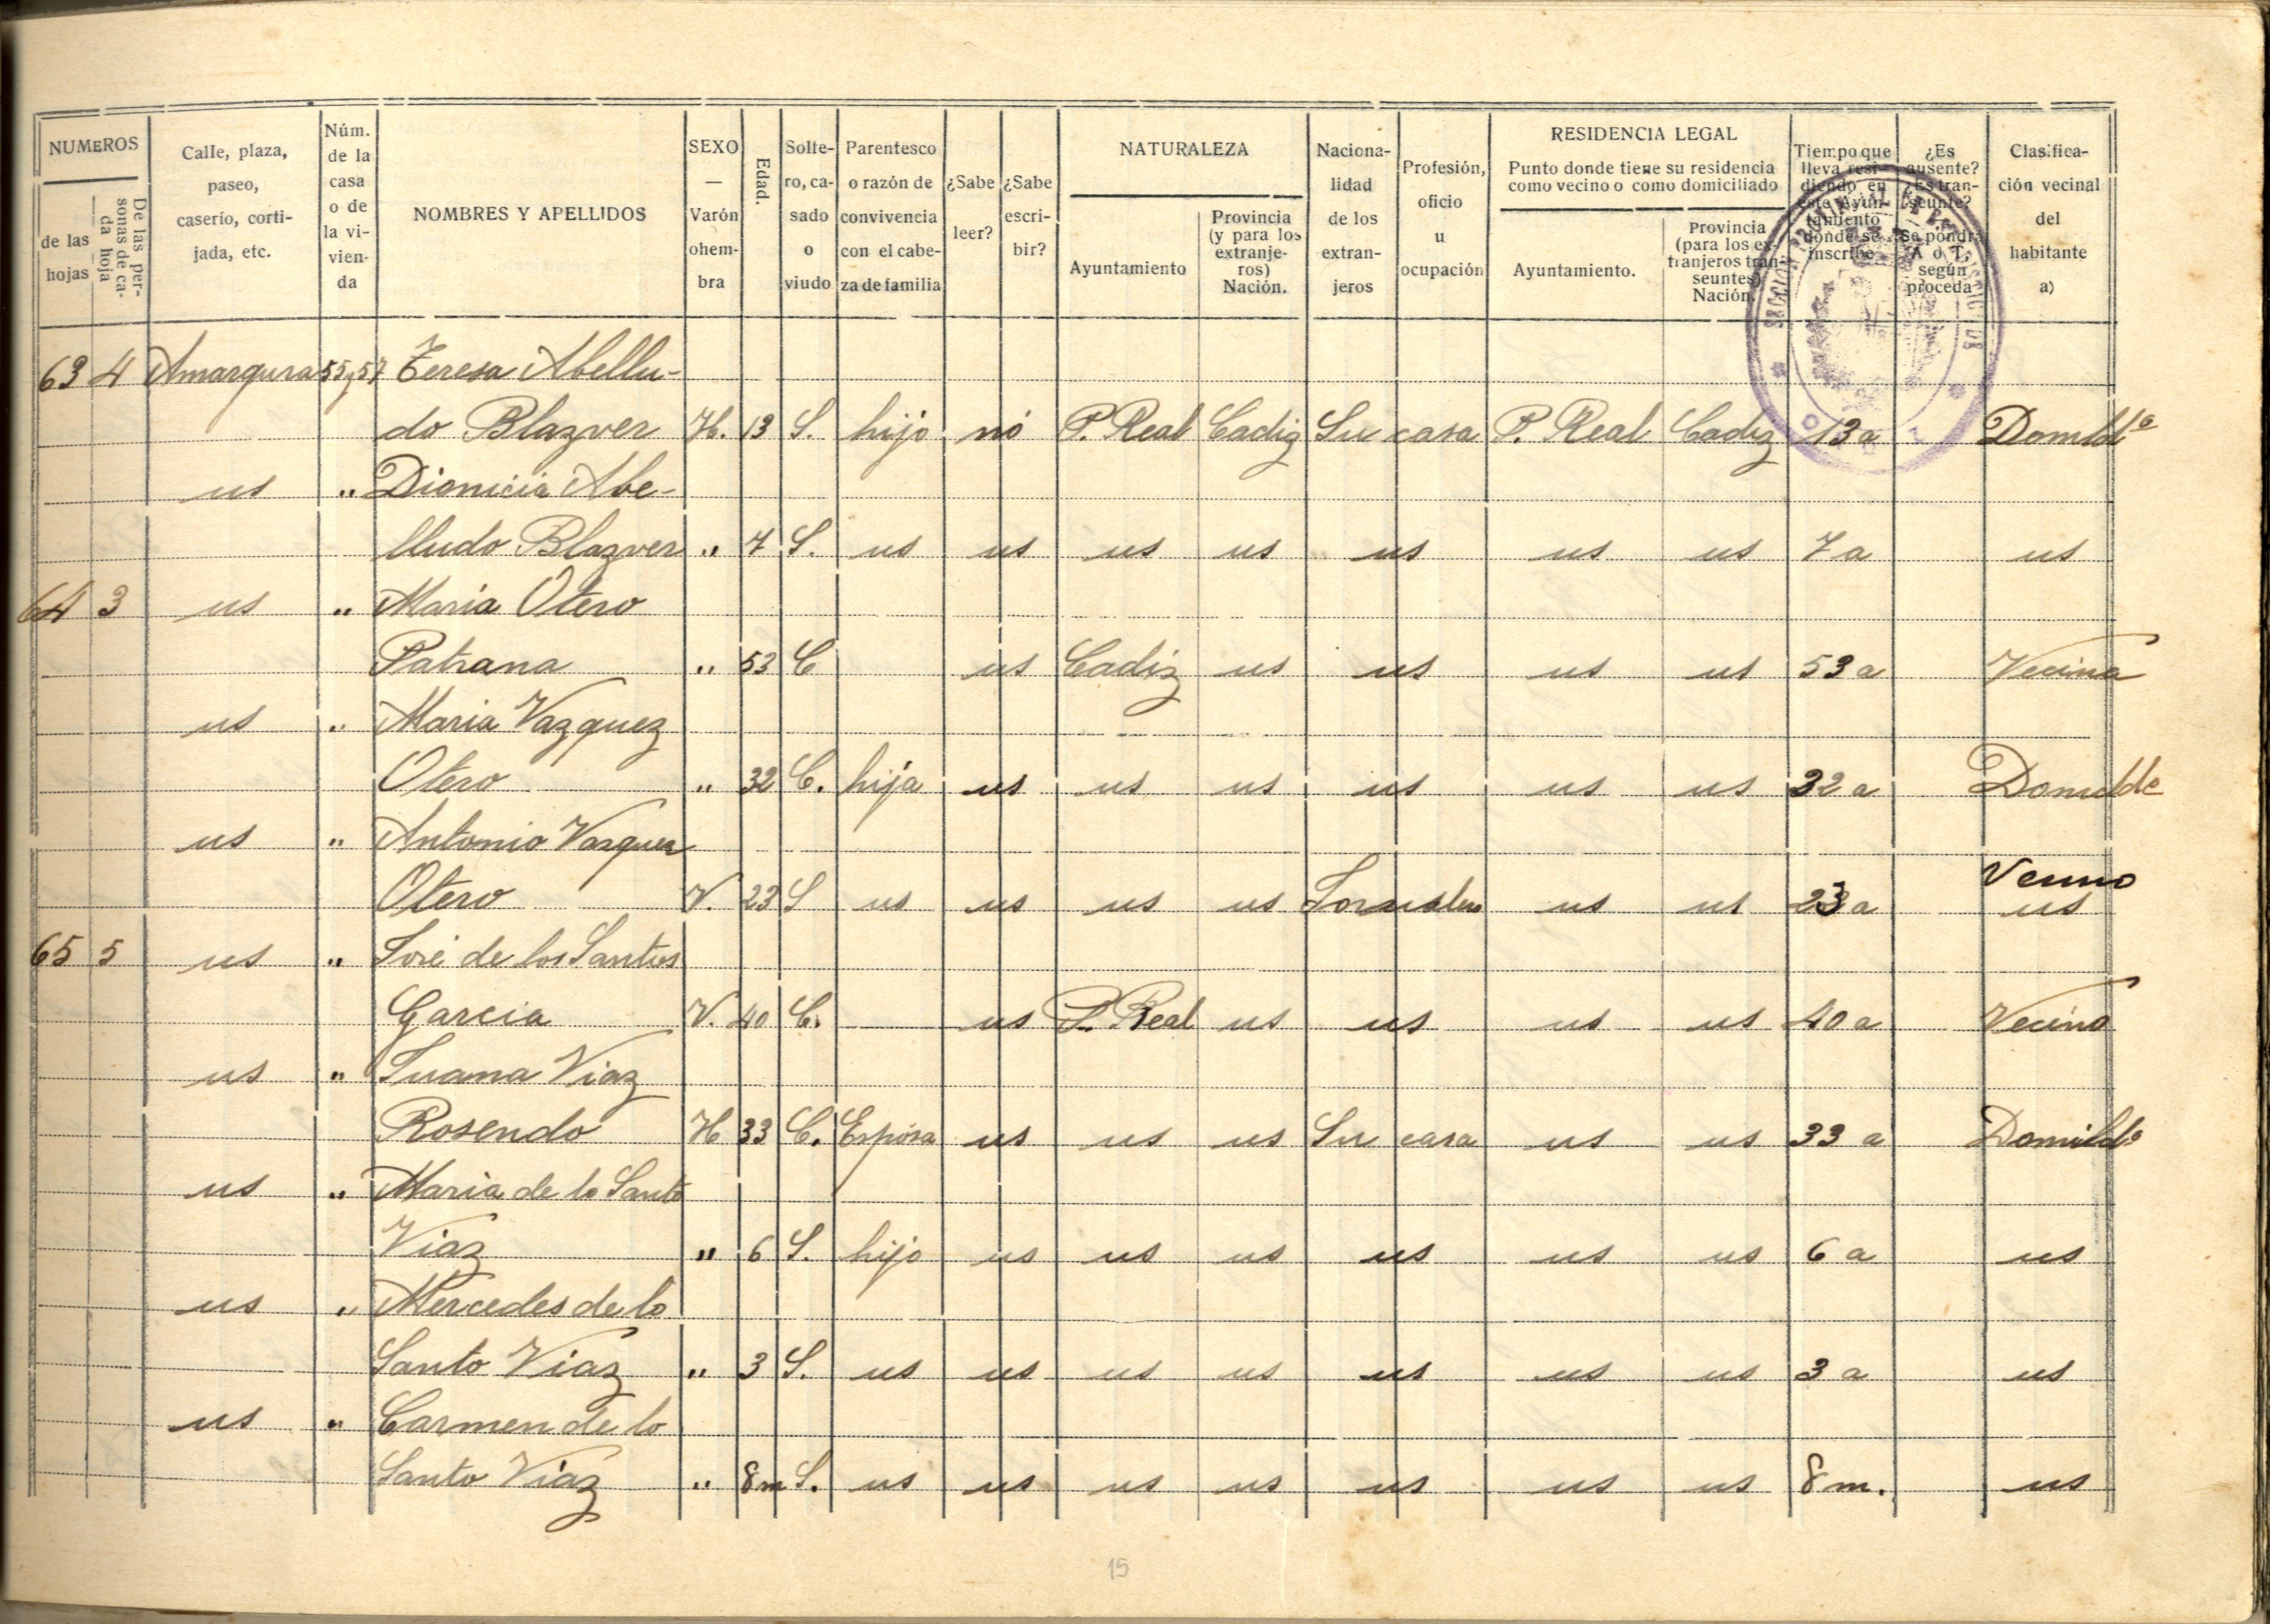 NUMEROS
de las hojas
De las personas de cada hoja
Calle, plaza, paseo, caserío, cortijada, etc.
Núm. de la casa o de la vivienda
NOMBRES Y APELLIDOS
SEXO — Varón o hembra
Edad.
Soltero, casado o viudo
Parentesco o razón de convivencia con el cabeza de familia
¿Sabe leer?
¿Sabe escribir?
NATURALEZA
Ayuntamiento
Provincia (y para los extranjeros) Nación.
Nacionalidad de los extranjeros
Profesión, oficio u ocupación
RESIDENCIA LEGAL
Punto donde tiene su residencia como vecino o como domiciliado
Ayuntamiento.
Provincia (para los extranjeros transeuntes) Nación.
Tiempo que lleva residiendo en este Ayuntamiento donde se inscribe
¿Es ausente? ¿Es transeunte? Se pondrá A o T, según proceda
Clasificación vecinal del habitante a)
63 4 Amargura 55y57 Teresa Abellu-
do Blazver H. 13 S. hijo nó P. Real Cadiz Su casa P. Real Cadiz 13 a Domildª
us " Dionicia Abe-
lludo Blazver " 7 S. us us us us us us us 7 a us
64 3 us " Maria Otero
Patrana " 53 C us Cadiz us us us us 53 a Vecina
us " Maria Vazquez
Otero " 32 C. hija us us us us us us 32 a Domilda
us " Antonio Vazquez
Vecino
Otero V. 23 S us us us us Jornalero us us 23 a us
65 5 us " José de los Santos
Garcia V. 40 C. us P. Real us us us us 40 a Vecino
us " Juana Viaz
Rosendo H 33 C. Esposa us us us Su casa us us 33 a Domildª
us " Maria de lo Santo
Viaz " 6 S. hijo us us us us us us 6 a us
us " Mercedes de lo
Santo Viaz " 3 S. us us us us us us us 3 a us
us " Carmen de lo
Santo Viaz " 8m S. us us us us us us us 8 m. us
15